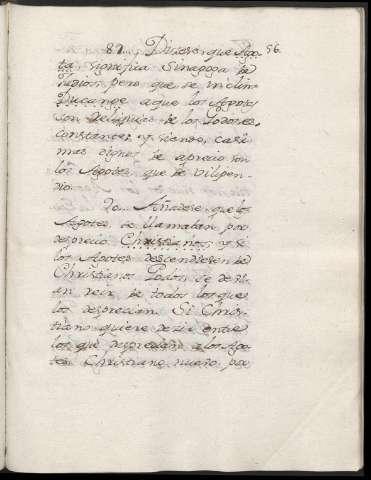 89. Dicese, que Ago- 56.
ta, significa Sinagoga de
Judios; pero que se inclin
Ducange a que los Agotes
son Reliquias de los Godos
constante, y siendo, casi
mas dignos de aprecio son
los Agotes, que de vilipen-
dio.
90. Añadese, que los
Agotes, se llamaban por
desprecio Christianos, y si
los Agotes descendiesen de
Christianos Godos, se devi-
an reir de todos los que
los desprecian. Si Chris-
tiano quiere decir entre
los que desprecian a los Ago-
tes Christiano nuevo, por